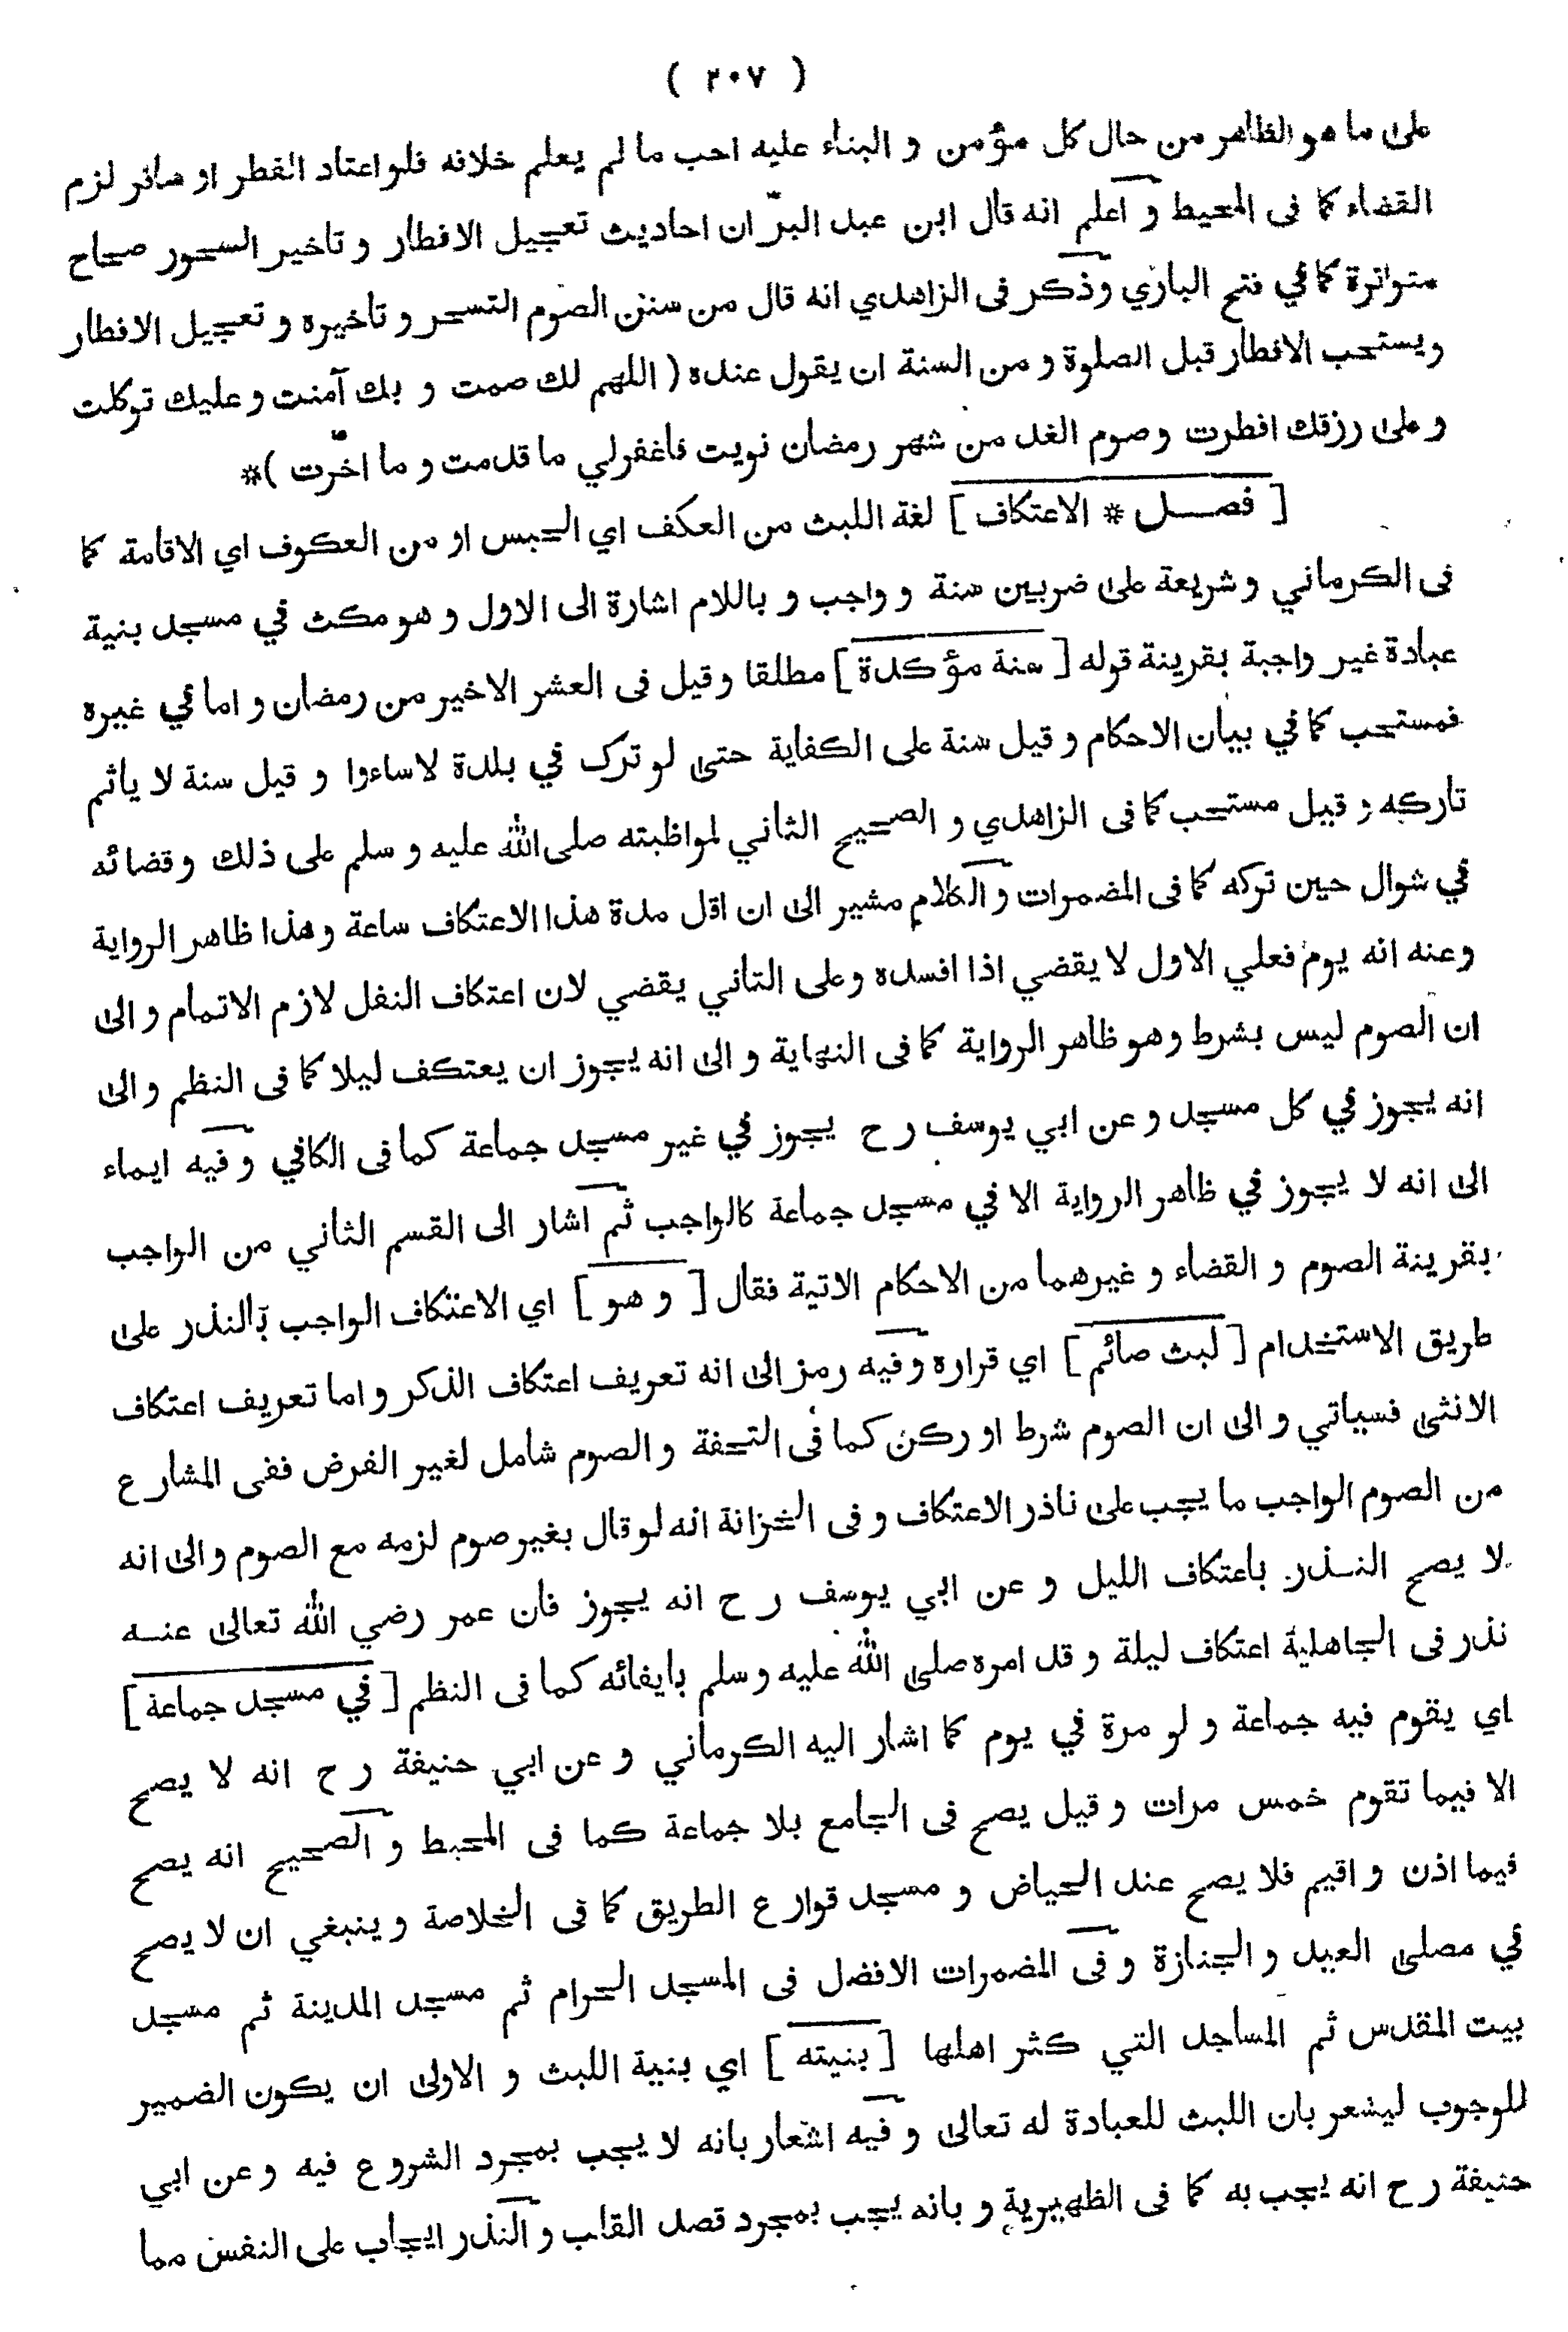 ( ٢٠٧ )
على ما هو الظاهر من حال كل مؤمن و البناء عليه احب ما لم يعلم خلافه فلو اعتاد الفطر او سافر لزم
القضاء كما فى المحيط و اعلم انه قال ابن عبد البرّ ان احاديث تعجيل الافطار و تاخير السحور صحاح
متواترة كما في فتح الباري وذكر فى الزاهدي انه قال من سنن الصوم التسحر و تاخيره و تعجيل الافطار
ويستحب الافطار قبل الصلوة و من السنة ان يقول عنده ( اللهم لك صمت و بك آمنت و عليك توكلت
و على رزقك افطرت و صوم الغد من شهر رمضان نويت فاغفرلي ما قدمت و ما اخّرت )*
[ فصــل * الاعتكاف ] لغة اللبث من العكف اي الحبس او من العكوف اي الاقامة كما
فى الكرماني و شريعة على ضربين سنة و واجب و باللام اشارة الى الاول و هو مكث في مسجد بنية
عبادة غير واجبة بقرينة قوله [ سنة مؤكدة ] مطلقا و قيل فى العشر الاخير من رمضان و اما في غيره
فمستحب كما في بيان الاحكام و قيل سنة على الكفاية حتى لو ترك في بلدة لاساءوا و قيل سنة لا ياثم
تاركه و قيل مستحب كما فى الزاهدي و الصحيح الثاني لمواظبته صلى الله عليه و سلم على ذلك و قضائه
في شوال حين تركه كما فى المضمرات و الكلام مشير الى ان اقل مدة هذا الاعتكاف ساعة و هذا ظاهر الرواية
وعنه انه يوم فعلي الاول لا يقضي اذا افسده و على الثاني يقضي لان اعتكاف النفل لازم الاتمام و الى
ان الصوم ليس بشرط و هو ظاهر الرواية كما فى النهاية و الى انه يجوز ان يعتكف ليلا كما فى النظم و الى
انه يجوز في كل مسجد و عن ابي يوسف ر ح يجوز في غير مسجد جماعة كما فى الكافي و فيه ايماء
الى انه لا يجوز في ظاهر الرواية الا في مسجد جماعة كالواجب ثم اشار الى القسم الثاني من الواجب
بقرينة الصوم و القضاء و غيرهما من الاحكام الاتية فقال [ و هو ] اي الاعتكاف الواجب بالنذر على
طريق الاستخدام [ لبث صائم ] اي قراره و فيه رمز الى انه تعريف اعتكاف الذكر و اما تعريف اعتكاف
الانثى فسياتي و الى ان الصوم شرط او ركن كما فى التحفة و الصوم شامل لغير الفرض ففى المشارع
من الصوم الواجب ما يجب على ناذر الاعتكاف و فى الخزانة انه لو قال بغير صوم لزمه مع الصوم و الى انه
لا يصح النــذر باعتكاف الليل و عن ابي يوسف ر ح انه يجوز فان عمر رضي الله تعالى عنــه
نذر فى الجاهلية اعتكاف ليلة و قد امره صلى الله عليه و سلم بايفائه كما فى النظم [ في مسجد جماعة ]
اي يقوم فيه جماعة و لو مرة في يوم كما اشار اليه الكرماني و عن ابي حنيفة ر ح انه لا يصح
الا فيما تقوم خمس مرات و قيل يصح فى الجامع بلا جماعة كما فى المحيط و الصحيح انه يصح
فيما اذن و اقيم فلا يصح عند الحياض و مسجد قوارع الطريق كما فى الخلاصة و ينبغي ان لا يصح
في مصلى العيد و الجنازة و فى المضمرات الافضل فى المسجد الحرام ثم مسجد المدينة ثم مسجد
بيت المقدس ثم المساجد التي كثر اهلها [ بنيته ] اي بنية اللبث و الاولى ان يكون الضمير
للوجوب ليشعر بان اللبث للعبادة له تعالى و فيه اشعار بانه لا يجب بمجرد الشروع فيه و عن ابي
حنيفة ر ح انه يجب به كما فى الظهيرية و بانه يجب بمجرد قصد القلب و النذر ايجاب على النفس مما